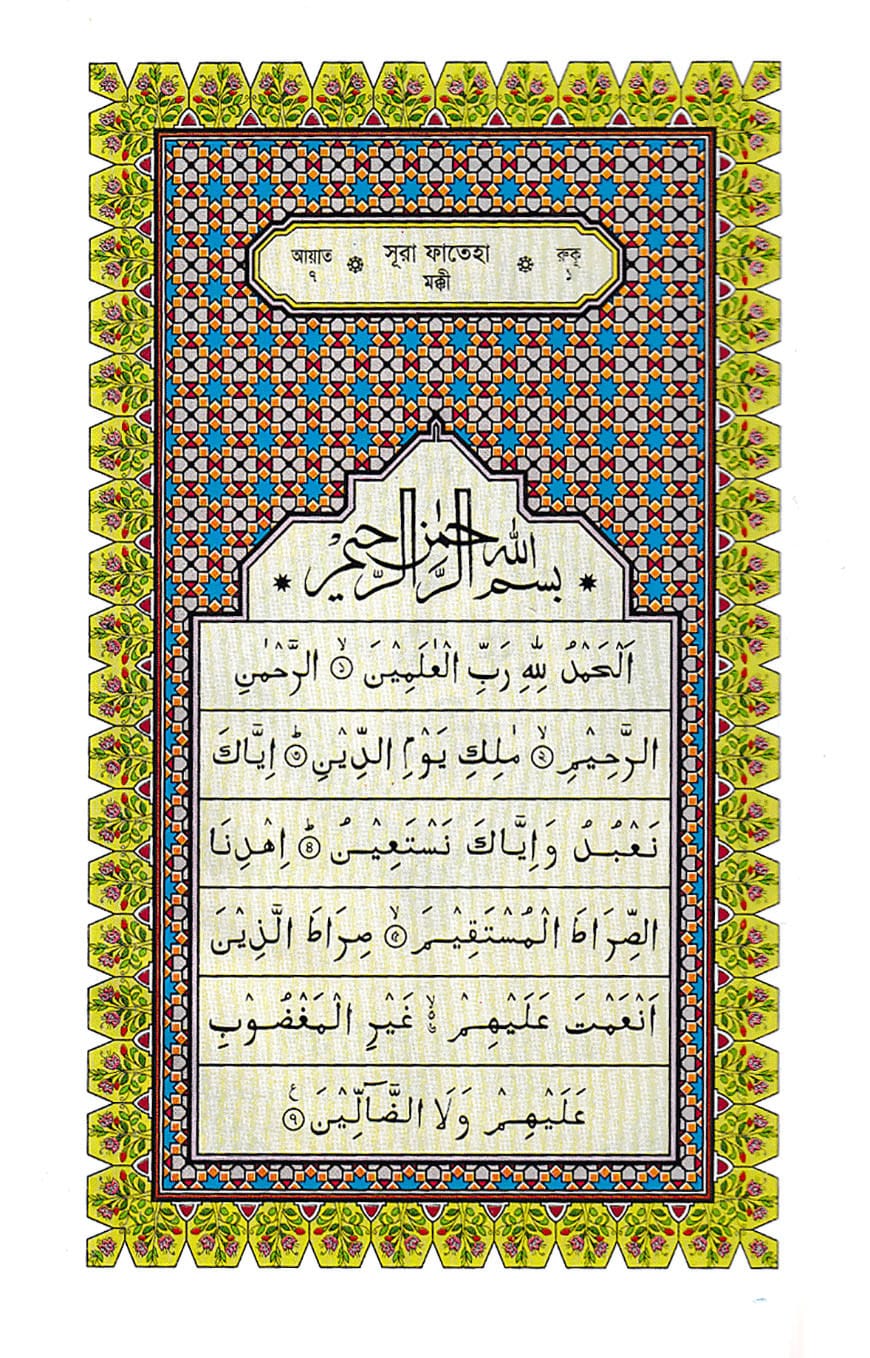 আয়াত ৭ সূরা ফাতেহা মক্কী রুকূ ১
بسم الله الرحمن الرحيم
اَلْحَمْدُ لِلّٰهِ رَبِّ الْعٰلَمِيْنَ ۙ﴿۱﴾ الرَّحْمٰنِ
الرَّحِيْمِ ۙ﴿۲﴾ مٰلِكِ يَوْمِ الدِّيْنِ ؕ﴿۳﴾ اِيَّاكَ
نَعْبُدُ وَاِيَّاكَ نَسْتَعِيْنُ ؕ﴿۴﴾ اِهْدِنَا
الصِّرَاطَ الْمُسْتَقِيْمَ ۙ﴿۵﴾ صِرَاطَ الَّذِيْنَ
اَنْعَمْتَ عَلَيْهِمْ ۙ۬ۦ غَيْرِ الْمَغْضُوْبِ
عَلَيْهِمْ وَلَا الضَّآلِّيْنَ ﴿۷﴾ ع